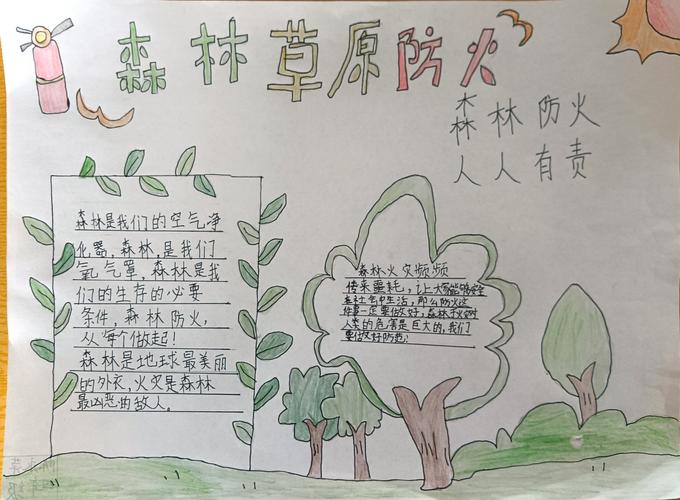 森林草原防火
森林防火
人人有责
森林是我们的空气净
化器,森林,是我们
氧气罩,森林是我
们的生存的必要
条件,森林防火,
从每个做起!
森林是地球最美丽
的外衣,火灾是森林
最凶恶的敌人。
森林火灾频频
传来噩耗,让大家能够安全
在社会中生活,那么防火这
件事一定要做好,森林火灾对
人类的危害是巨大的,我们
要做好防范!